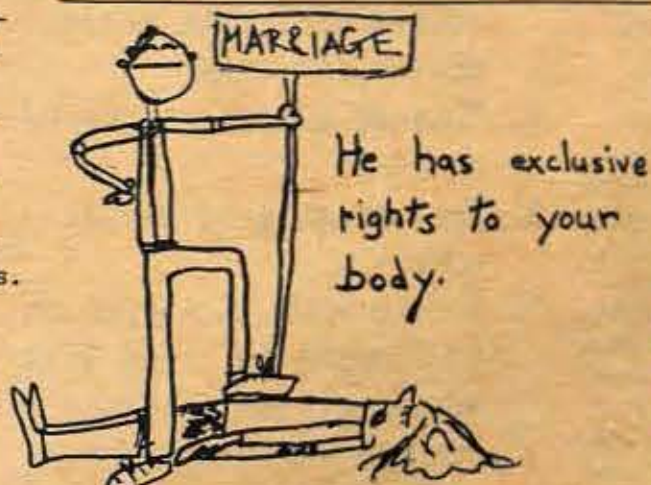 MARRIAGE
He has exclusive
rights to your
body.
s.